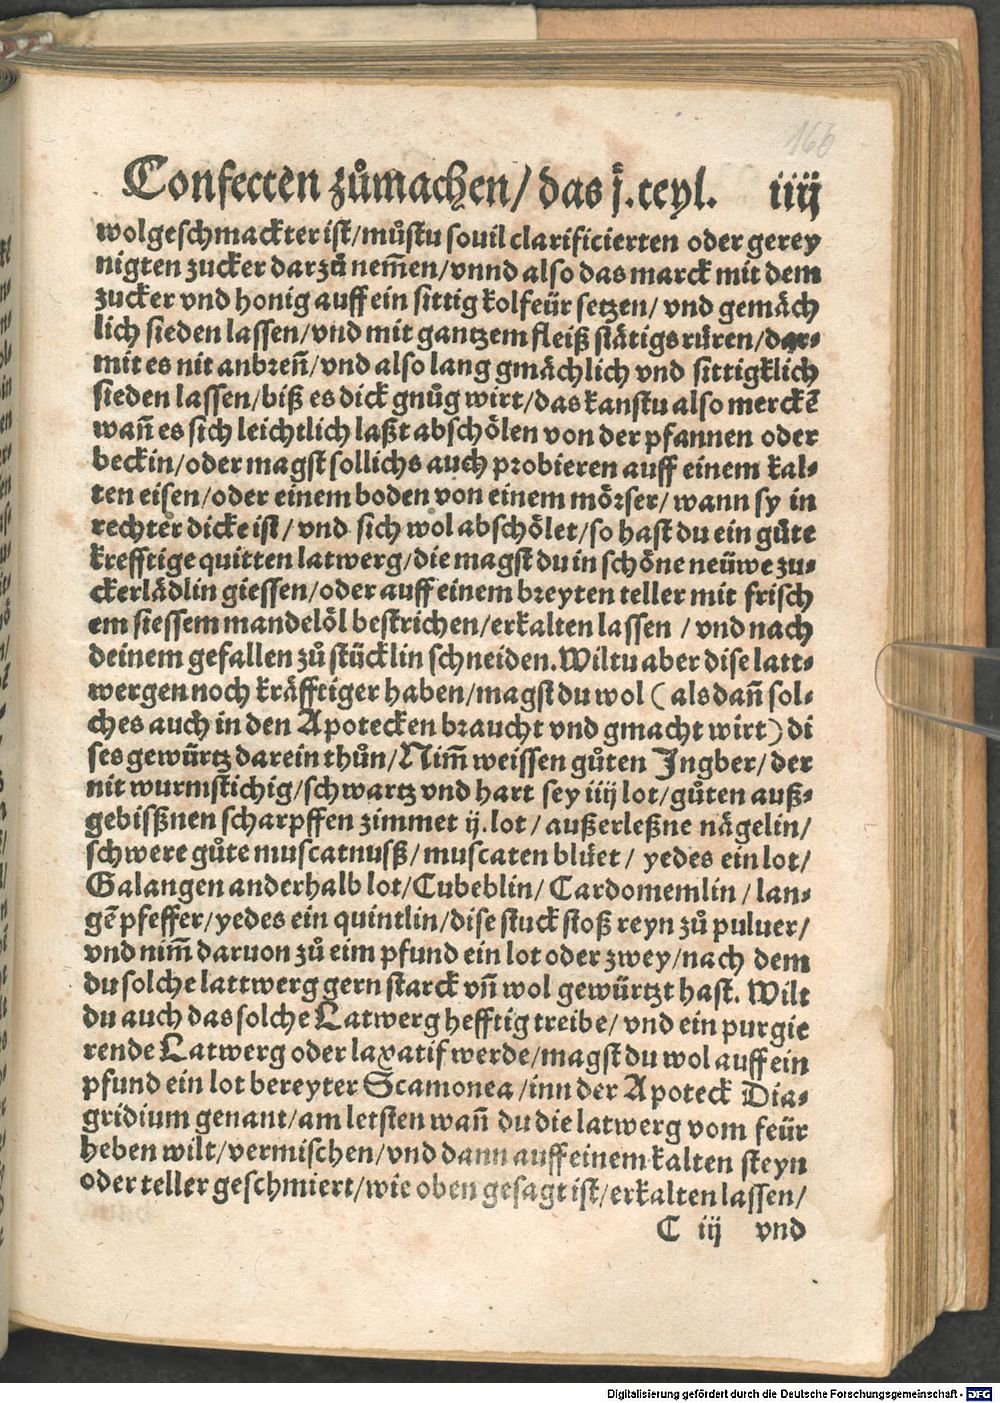 166
Confecten zůmachen/ das j. teyl. iiij
wolgeschmackter ist/ můstu souil clarificierten oder gerey
nigten zucker darzů nem̄en/ vnnd also das marck mit dem
zucker vnd honig auff ein sittig kolfeür setzen/ vnd gemäch
lich sieden lassen/ vnd mit gantzem fleiß stätigs rüren/ dar⸗
mit es nit anbreñ/ vnd also lang gmächlich vnd sittigklich
sieden lassen/ biß es dick gnůg wirt/ das kanstu also merckē
wañ es sich leichtlich laßt abschölen von der pfannen oder
beckin/ oder magst sollichs auch probieren auff einem kal⸗
ten eisen/ oder einem boden von einem mörser/ wann sy in
rechter dicke ist/ vnd sich wol abschölet/ so hast du ein gůte
krefftige quitten latwerg/ die magst du in schöne neüwe zu⸗
ckerlädlin giessen/ oder auff einem breyten teller mit frisch
em siessem mandelöl bestrichen/ erkalten lassen / vnd nach
deinem gefallen zů stücklin schneiden. Wiltu aber dise latt⸗
wergen noch kräfftiger haben/ magst du wol ( als dañ sol⸗
ches auch in den Apotecken braucht vnd gmacht wirt) di
ses gewürtz darein thůn/ Nim̄ weissen gůten Jngber/ der
nit wurmstichig/ schwartz vnd hart sey iiij lot/ gůten auß⸗
gebißnen scharpffen zimmet ij. lot/ außerleßne nägelin/
schwere gůte muscatnuß/ muscaten blüet/ yedes ein lot/
Galangen anderhalb lot/ Cubeblin/ Cardomemlin / lan⸗
gē pfeffer/ yedes ein quintlin/ dise stuck stoß reyn zů puluer/
vnd nim̄ daruon zů eim pfund ein lot oder zwey/ nach dem
du solche lattwerg gern starck vñ wol gewürtzt hast. Wilt
du auch das solche Latwerg hefftig treibe/ vnd ein purgie
rende Latwerg oder laxatif werde/ magst du wol auff ein
pfund ein lot bereyter Scamonea / inn der Apoteck Dia⸗
gridium genant/ am letsten wañ du die latwerg vom feür
heben wilt/ vermischen/ vnd dann auff einem kalten steyn
oder teller geschmiert/ wie oben gesagt ist/ erkalten lassen/
C iij vnd
Digitalisierung gefördert durch die Deutsche Forschungsgemeinschaft - DFG